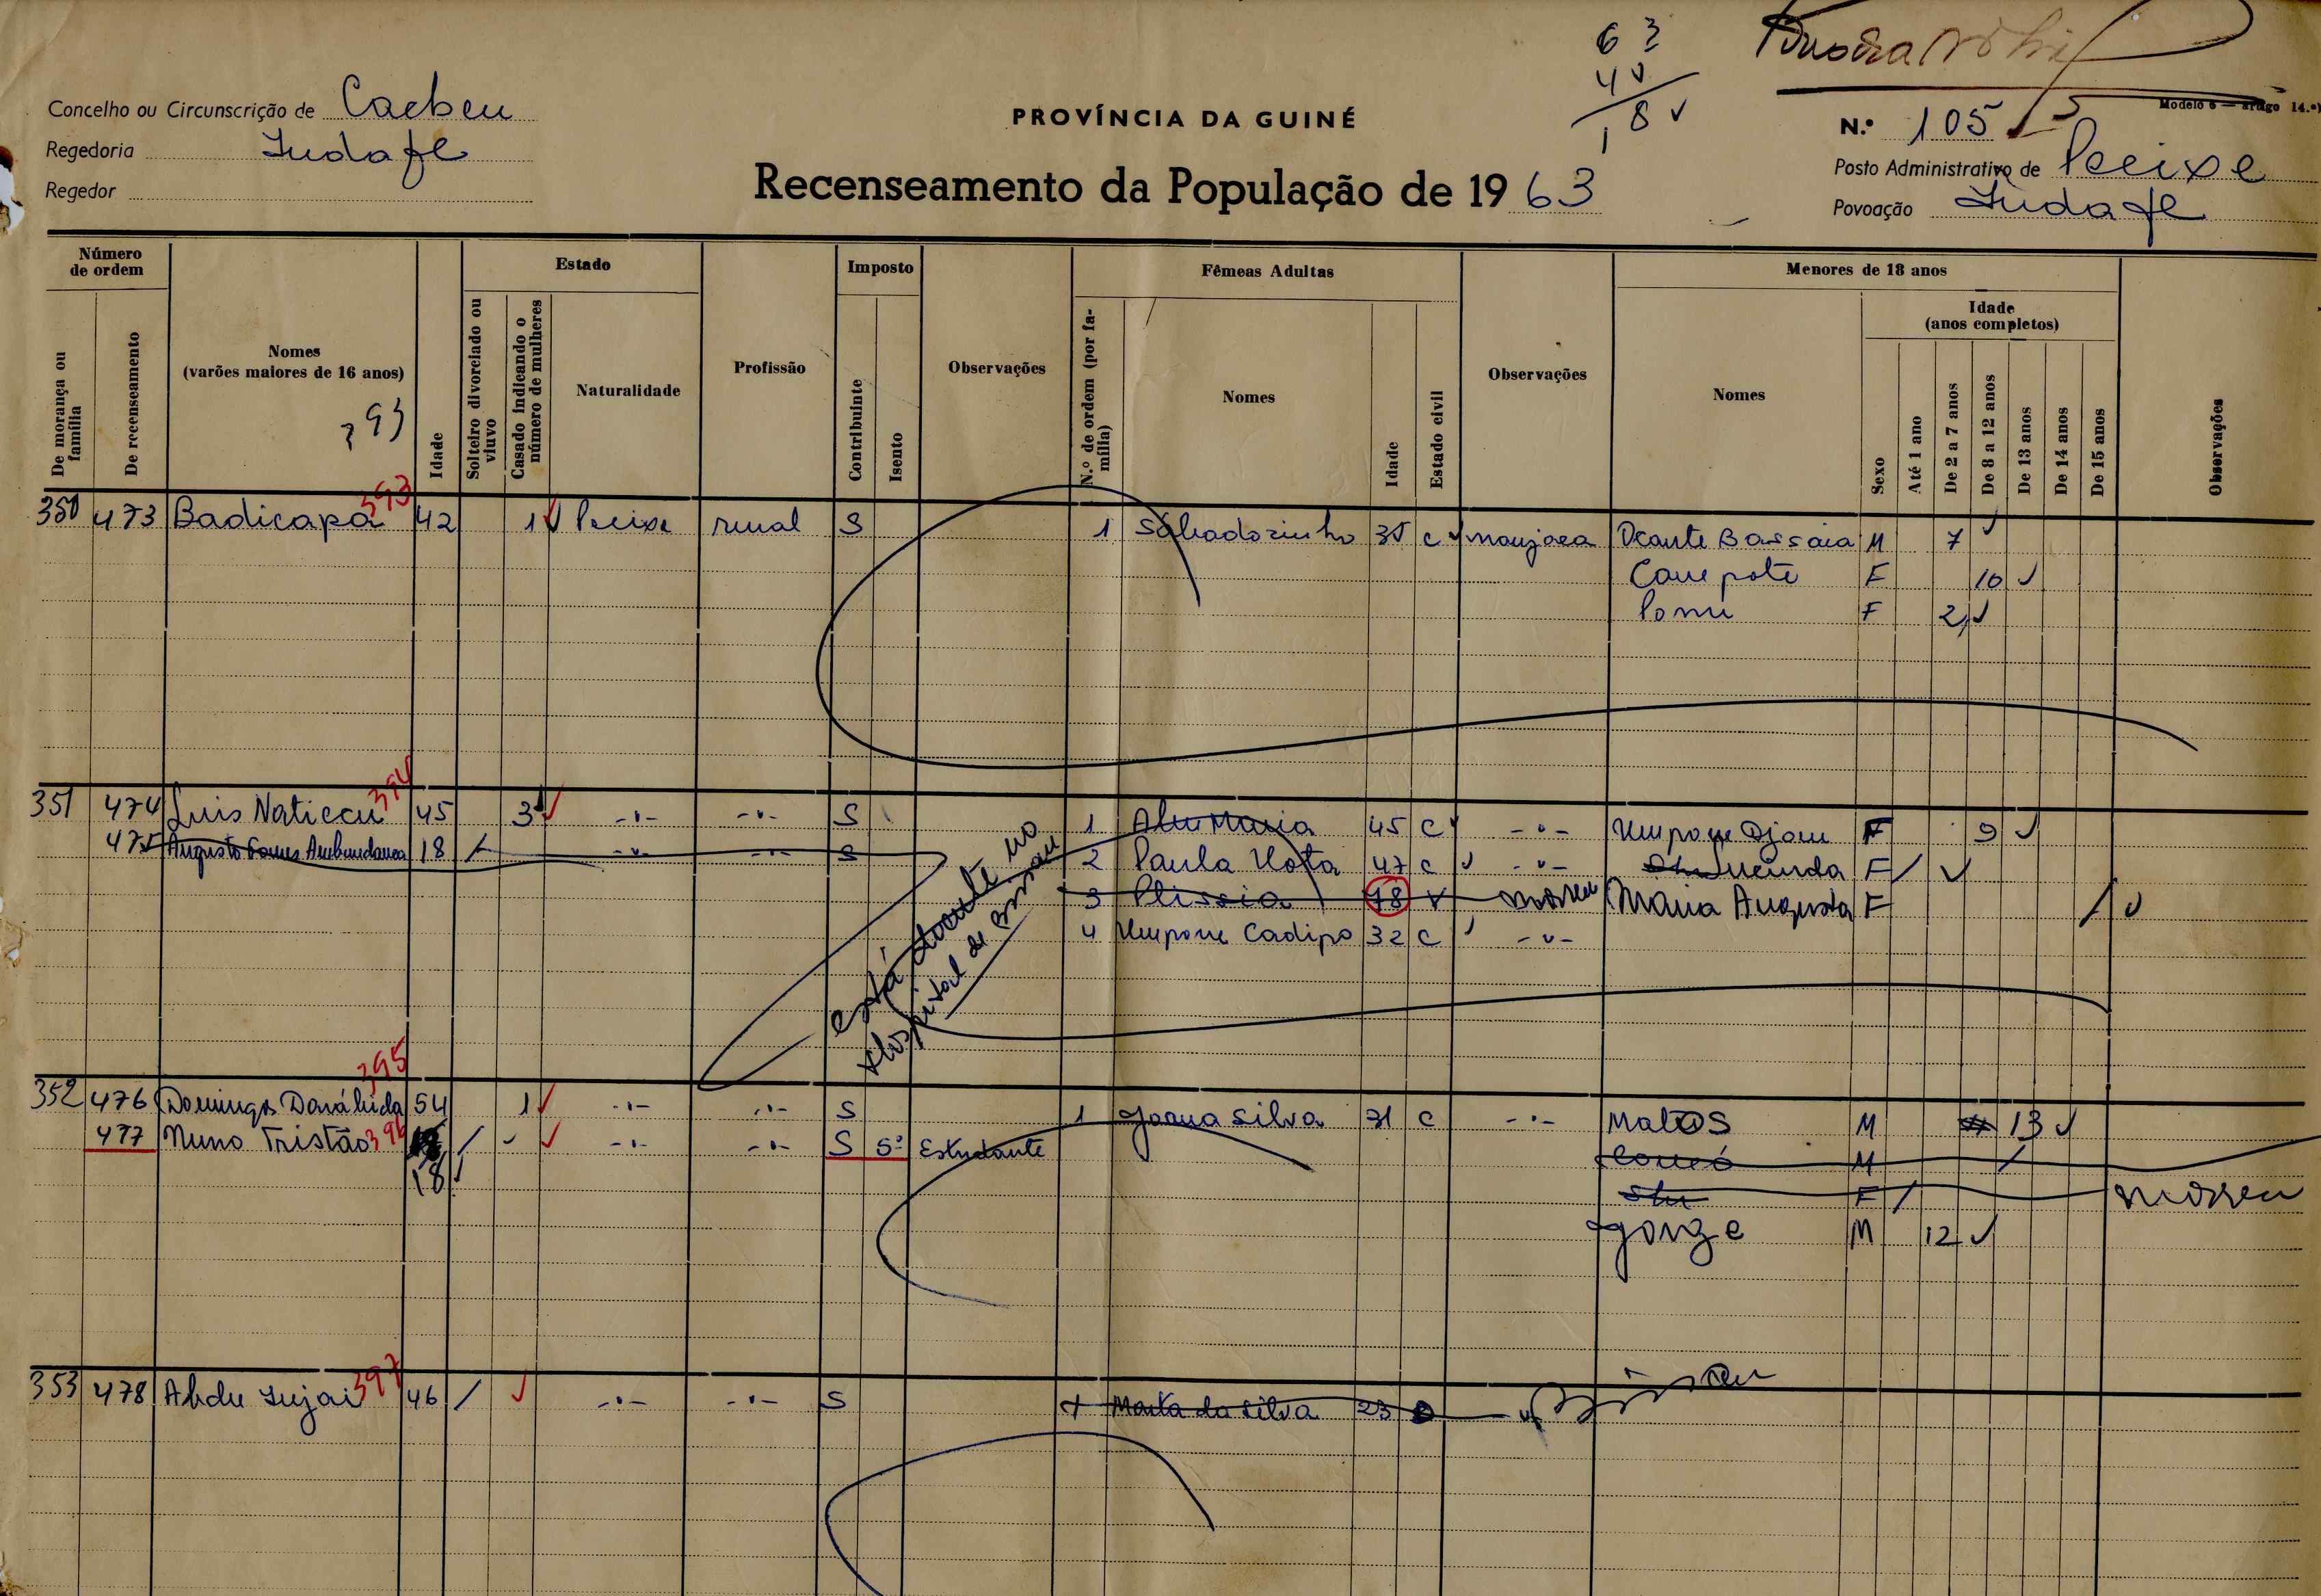 6 3
4
8
Modelo 6 — artigo 14.º)
Concelho ou Circunscrição de Caebeu
PROVÍNCIA DA GUINÉ
N.º 105
Regedoria Iudafe
Posto Administrativo de Pecixe
Regedor
Recenseamento da População de 1963
Povoação Iudafe
Número de ordem
Estado
Imposto
Fêmeas Adultas
Menores de 18 anos
Idade (anos completos)
De morança ou família
De recenseamento
Nomes (varões maiores de 16 anos)
393
Idade
Solteiro divorciado ou viuvo
Casado indicando o número de mulheres
Naturalidade
Profissão
Contribuinte
Isento
Observações
N.º de ordem (por família)
Nomes
Idade
Estado civil
Observações
Nomes
Sexo
Até 1 ano
De 2 a 7 anos
De 8 a 12 anos
De 13 anos
De 14 anos
De 15 anos
Observações
350 473 Badicapa 393 42 1 Pecixe rural S 1 Sábadozinho 35 c manjaca Deante Bassaia M 7
Campote F 10
Pomi F 2
351 474 Luis Naticcu 394 45 3 -"- -"- S 1 Ahu Maria 45 c -"- Umpone Djam F 9
475 Augusto Gomes Ambundanca 18 / -"- -"- S 2 Paula Hota 47 c -"- Lucinda F /
3 Plissia 78 v morreu Maria Augusta F /
4 Umpone Cadipo 32 c -"-
está doente no
Hospital de Bissau
352 476 Domingos Danáhida 395 54 1 -"- -"- S 1 Joana Silva 31 c -"- Matos M 13
477 Nuno Tristão 396 / -"- -"- S 5º Estudante M /
18 F / morreu
Jorge M 12
353 478 Abdu Injai 397 46 / -"- -"- S 1 Marta da Silva 23 Bissau